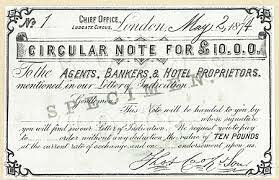 No 1
CHIEF OFFICE,
LUDGATE CIRCUS,
London, May 2, 1874
CIRCULAR NOTE FOR £10.0.0
To the AGENTS, BANKERS, & HOTEL PROPRIETORS,
mentioned in our Letter of Indication
SPECIMEN.
Gentlemen,
This Note will be handed to you by
whose signature
you will find in our Letter of Indication. We request you to pay to
order without any deduction, the value of TEN POUNDS
at the current rate of exchange, and on endorsement upon us.
Thos Cook & Son